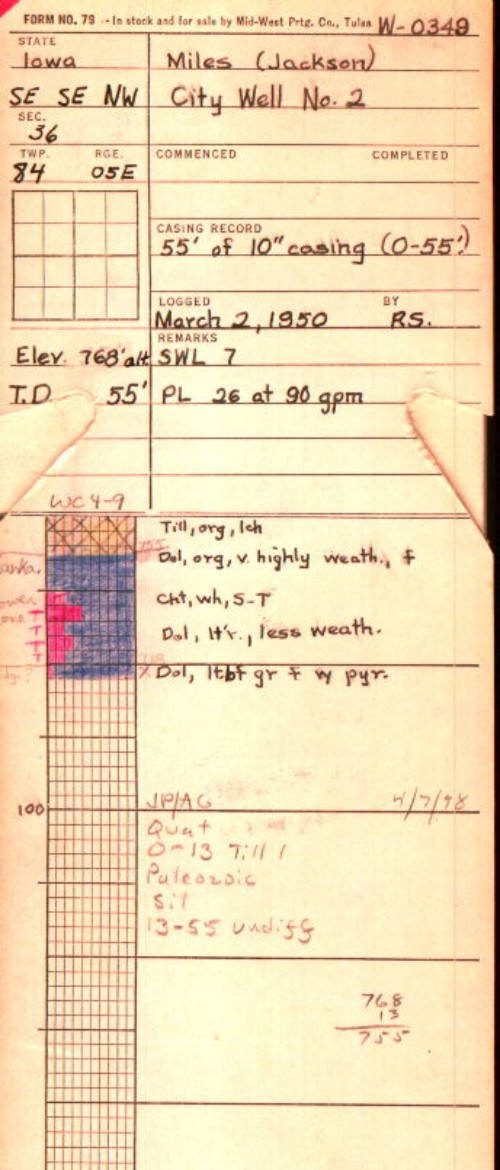 FORM NO. 79 -- In stock and for sale by Mid-West Prtg. Co., Tulsa W-0349
STATE
Iowa Miles (Jackson)
SE SE NW City Well No. 2
SEC.
36
TWP. RGE. COMMENCED COMPLETED
84 05E
CASING RECORD
55' of 10" casing (0-55')
LOGGED BY
March 2, 1950 RS.
REMARKS
Elev. 768' alt SWL 7
T.D. 55' PL 26 at 90 gpm
WC 4-9
Till, org, lch
755
Dol, org, v. highly weath., f
Cht, wh, S-T
Dol, lt'r., less weath.
Dol, lt bf gr f w pyr.
JP/AG 4/7/98
100
Quat
0-13 Till
Paleozoic
Sil
13-55 undiff
768
13
755